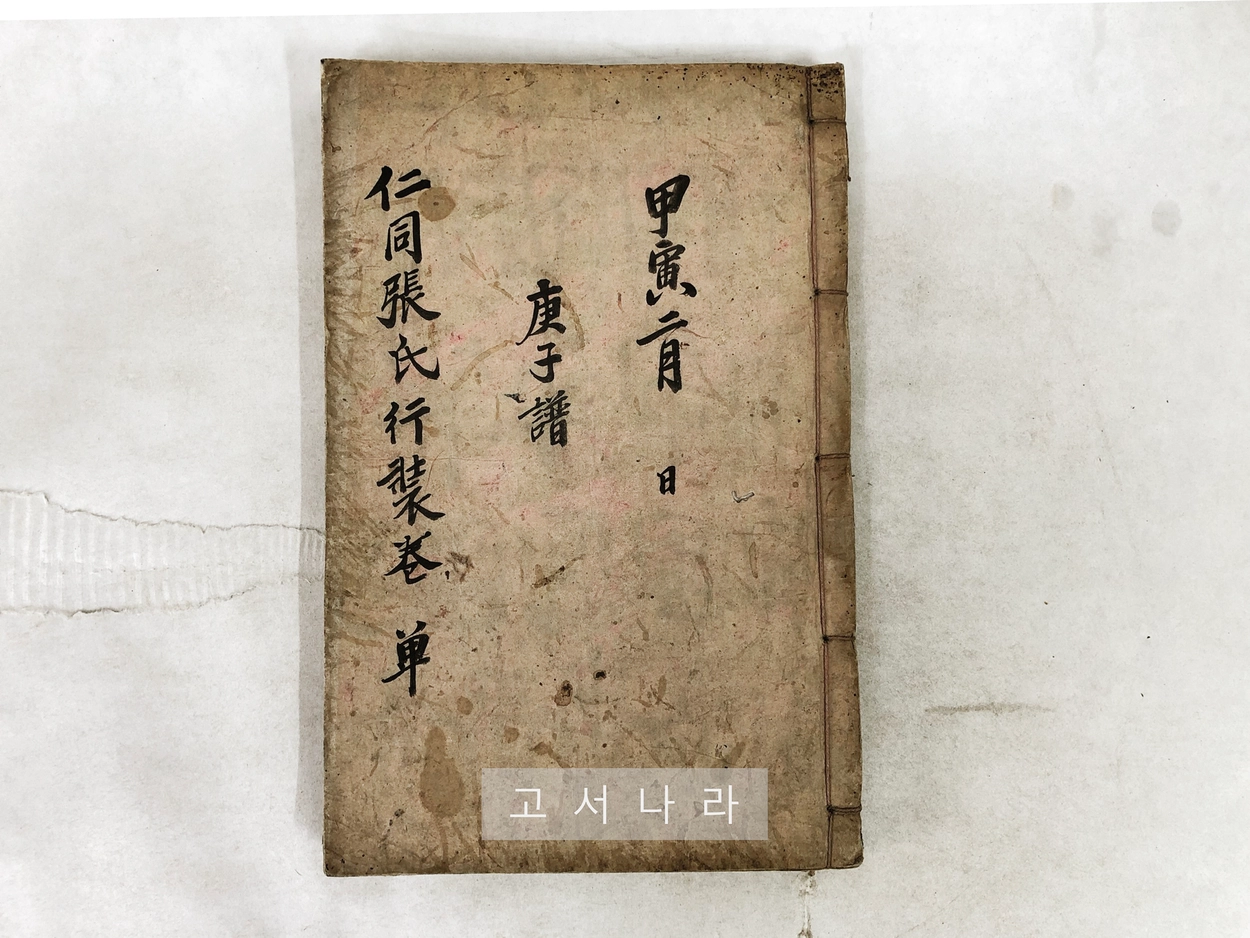 甲寅二月 日
庚子譜
仁同張氏行裝卷 单
고서나라